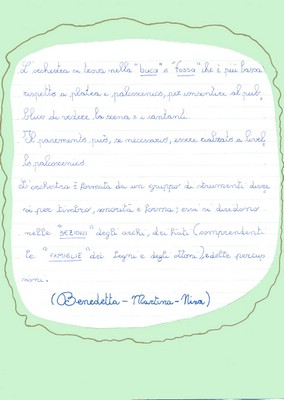 L'orchestra si trova nella "buca" o "fossa" che è più bassa
rispetto a platea e palcoscenico, per consentire al pub=
blico di vedere la scena e i cantanti.
Il pavimento, può, se necessario, essere rialzato a livel
lo palcoscenico.
L'orchestra è formata da un gruppo di strumenti diver
si per timbro, sonorità e forma; essi si dividono
nelle "SEZIONI" degli archi, dei fiati (comprendenti
le "FAMIGLIE" dei legni e degli ottoni) e delle percus
sioni.
(Benedetta - Martina - Nisa)